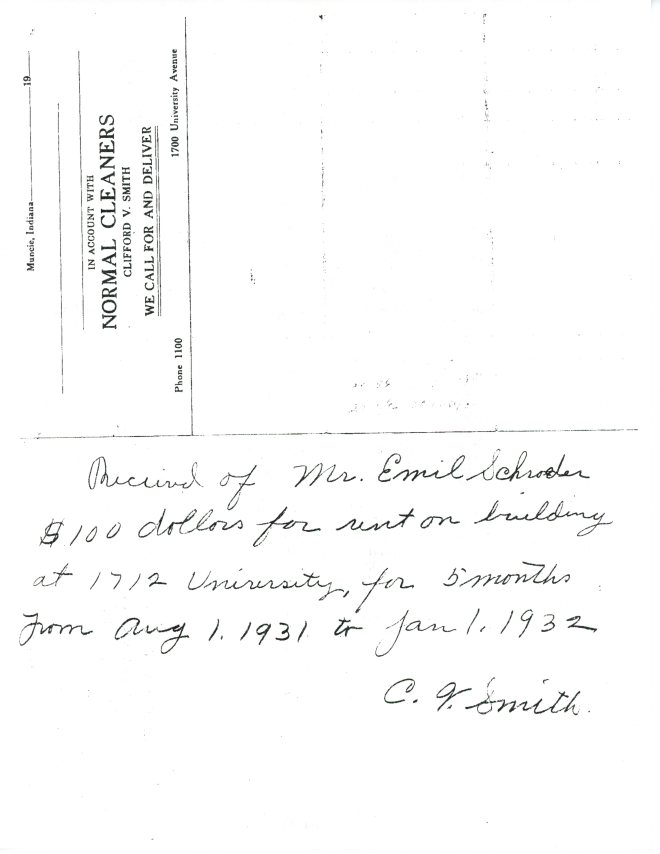 Muncie, Indiana 19
IN ACCOUNT WITH
NORMAL CLEANERS
CLIFFORD V. SMITH
WE CALL FOR AND DELIVER
Phone 1100 1700 University Avenue
Received of Mr. Emil Schroder
$100 dollars for rent on building
at 1712 University, for 5 months
From Aug 1. 1931 to Jan 1. 1932
C. V. Smith.